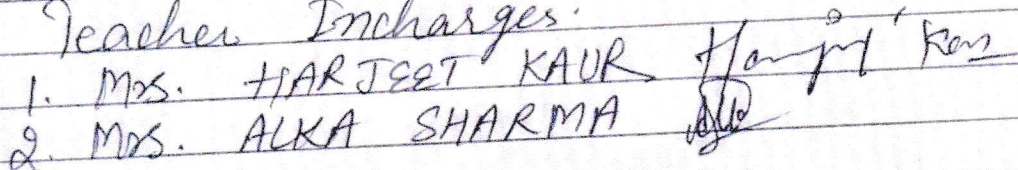 Teacher Incharges.
1. Mrs. HARJEET KAUR Harjit Kaur
2. Mrs. ALKA SHARMA